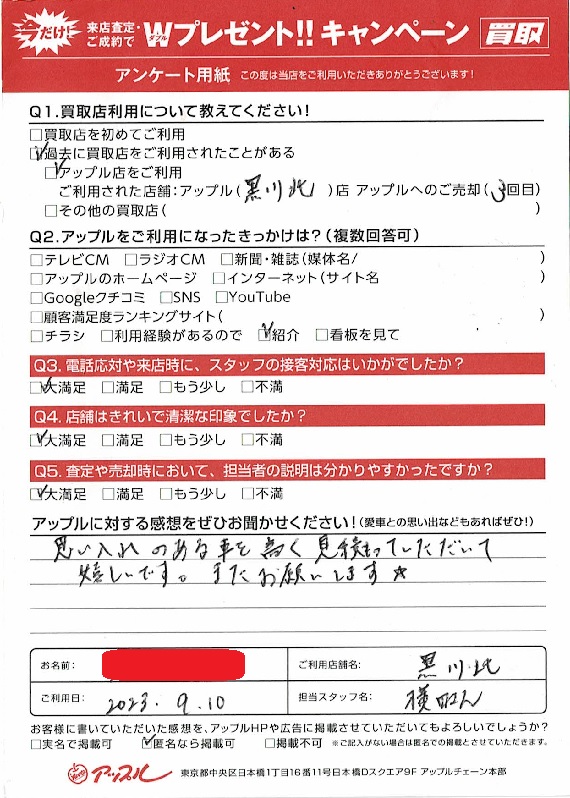 今だけ! 来店査定・ご成約で Wダブルプレゼント!! キャンペーン 買取
アンケート用紙 この度は当店をご利用いただきありがとうございます!
Q1.買取店利用について教えてください!
□買取店を初めてご利用
☑過去に買取店をご利用されたことがある
☑アップル店をご利用
ご利用された店舗:アップル(黒川北)店 アップルへのご売却(3回目)
□その他の買取店( )
Q2.アップルをご利用になったきっかけは?(複数回答可)
□テレビCM □ラジオCM □新聞・雑誌(媒体名/ )
□アップルのホームページ □インターネット(サイト名 )
□Googleクチコミ □SNS □YouTube
□顧客満足度ランキングサイト( )
□チラシ □利用経験があるので ☑紹介 □看板を見て
Q3.電話応対や来店時に、スタッフの接客対応はいかがでしたか?
☑大満足 □満足 □もう少し □不満
Q4.店舗はきれいで清潔な印象でしたか?
☑大満足 □満足 □もう少し □不満
Q5.査定や売却時において、担当者の説明は分かりやすかったですか?
☑大満足 □満足 □もう少し □不満
アップルに対する感想をぜひお聞かせください!(愛車との思い出などもあればぜひ!)
思い入れのある車を高く見積もっていただいて
嬉しいです。またお願いします☆
お名前: ご利用店舗名: 黒川北
ご利用日: 2023. 9. 10 担当スタッフ名: 横田さん
お客様に書いていただいた感想を、アップルHPや広告に掲載させていただいてもよろしいでしょうか?
□実名で掲載可 ☑匿名なら掲載可 □掲載不可 ※ご記入がない場合は匿名での掲載とさせていただきます。
アップル 東京都中央区日本橋1丁目16番11号日本橋Dスクエア9F アップルチェーン本部